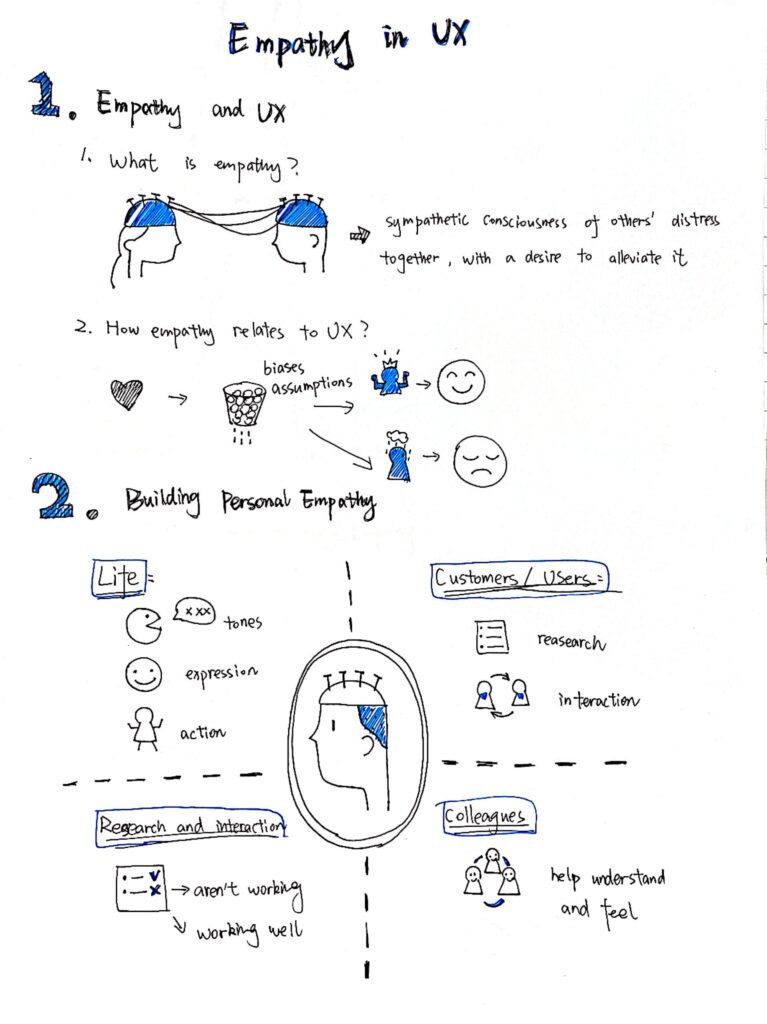 Empathy in UX
1. Empathy and UX
1. What is empathy?
sympathetic consciousness of others' distress
together, with a desire to alleviate it
2. How empathy relates to UX?
biases
assumptions
2. Building Personal Empathy
Life:
xxx tones
expression
action
Customers / Users:
reasearch
interaction
Research and interaction
aren't working
working well
Colleagues
help understand
and feel